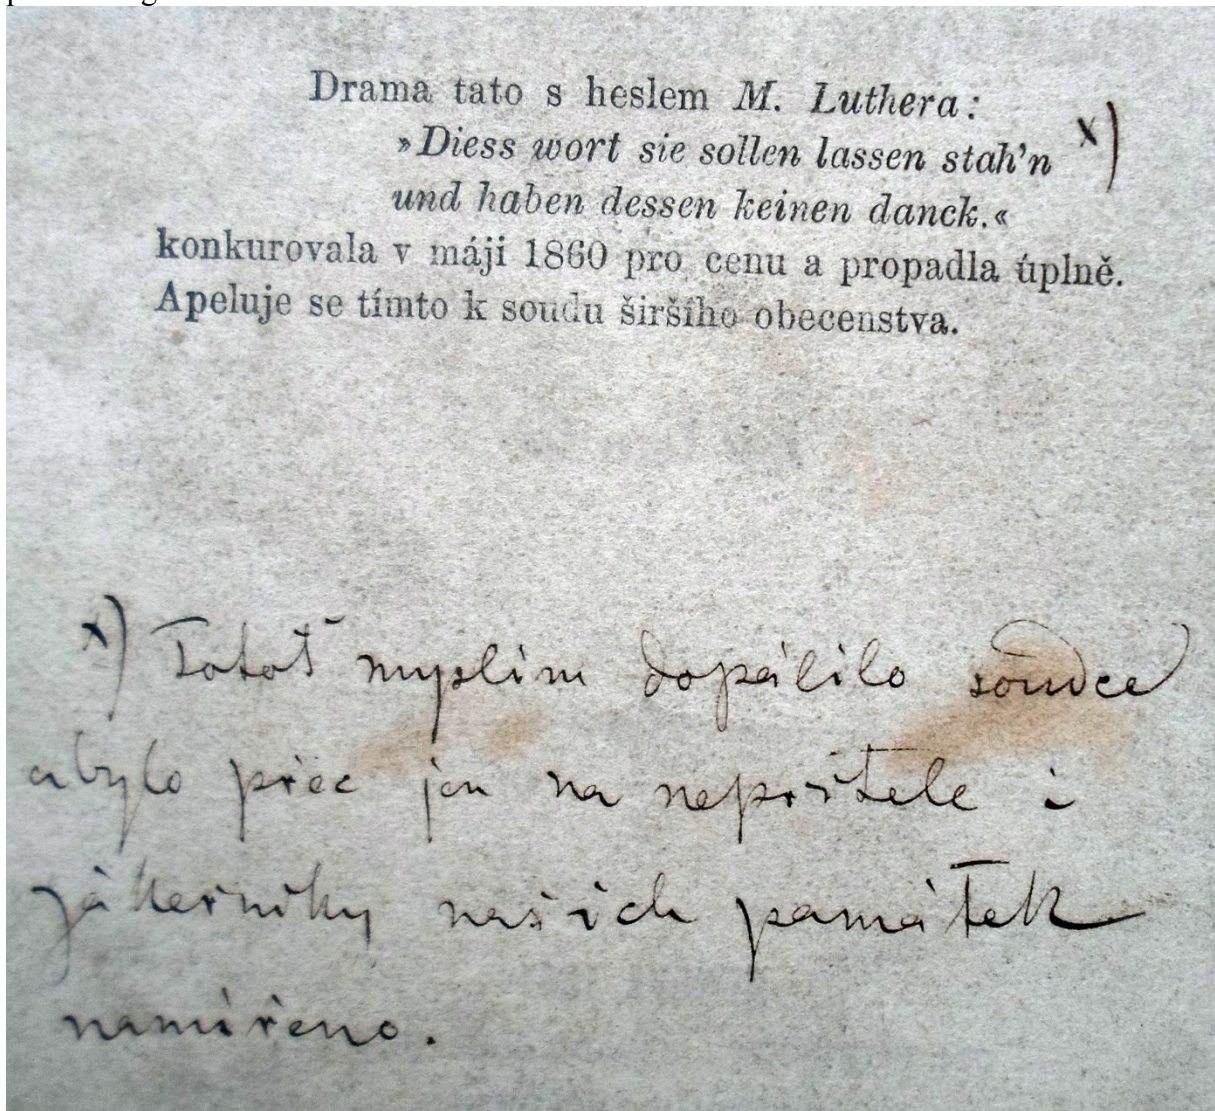 Drama tato s heslem M. Luthera:
»Diess wort sie sollen lassen stah'n x)
und haben dessen keinen danck.«
konkurovala v máji 1860 pro cenu a propadla úplně.
Apeluje se tímto k soudu širšího obecenstva.
x) Totoť myslim dopálilo soudce
a bylo přec jen na nepřítele i
zákeřníky našich památek
namířeno.